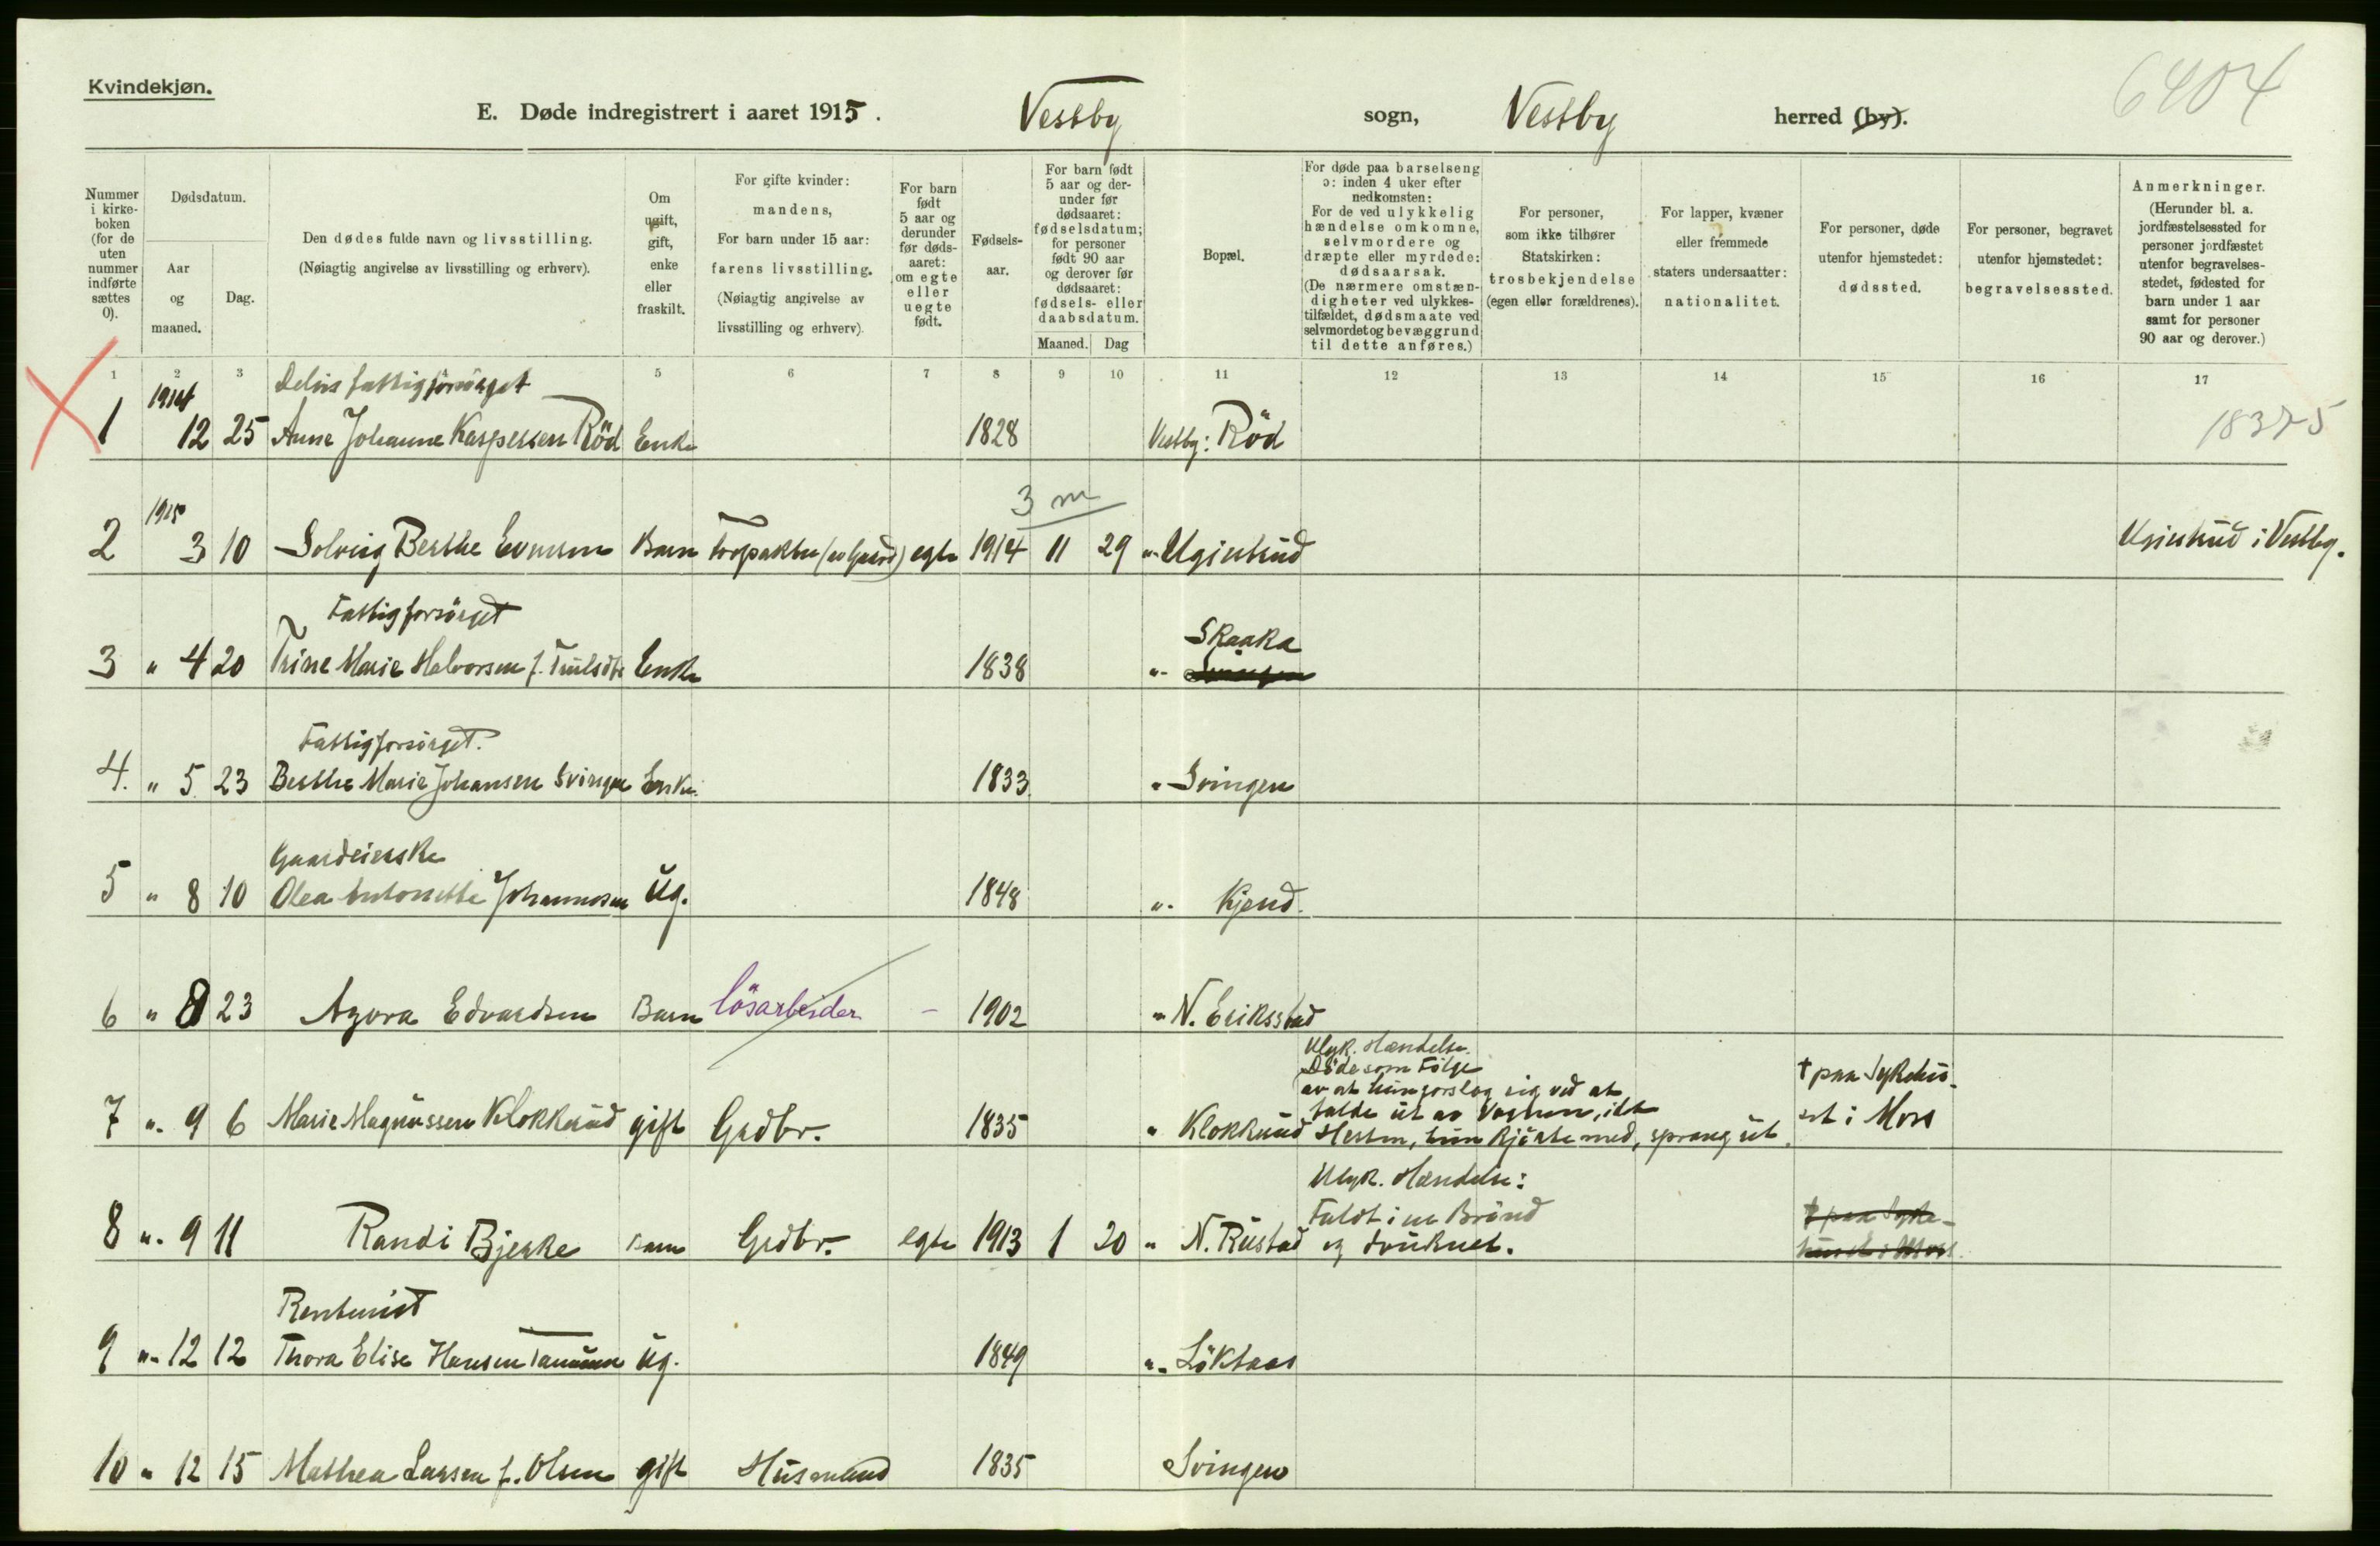 Kvindekjøn.
E. Døde indregistrert i aaret 1915. Vestby sogn, Vestby herred (by).
6404
Nummer i kirke-boken (for de uten nummer indførte sættes 0).
Dødsdatum.
Aar og maaned.
Dag.
Den dødes fulde navn og livsstilling.
(Nøiagtig angivelse av livsstilling og erhverv).
Om ugift, gift, enke eller fraskilt.
For gifte kvinder: mandens, For barn under 15 aar: farens livsstilling. (Nøiagtig angivelse av livsstilling og erhverv).
For barn født 5 aar og derunder før døds-aaret: om egte eller uegte født.
Fødsels-aar.
For barn født 5 aar og der-under før dødsaaret: fødselsdatum; for personer født 90 aar og derover før dødsaaret: fødsels- eller daabsdatum.
Maaned. Dag
Bopæl.
For døde paa barselseng ɔ: inden 4 uker efter nedkomsten: For de ved ulykkelig hændelse omkomne, selvmordere og dræpte eller myrdede: dødsaarsak. (De nærmere omstæn-digheter ved ulykkes-tilfældet, dødsmaate ved selvmordet og bevæggrund til dette anføres.)
For personer, som ikke tilhører Statskirken: trosbekjendelse (egen eller forældrenes).
For lapper, kvæner eller fremmede staters undersaatter: nationalitet.
For personer, døde utenfor hjemstedet: dødssted.
For personer, begravet utenfor hjemstedet: begravelsessted.
Anmerkninger. (Herunder bl. a. jordfæstelsessted for personer jordfæstet utenfor begravelses-stedet, fødested for barn under 1 aar samt for personer 90 aar og derover.)
1 2 3 5 6 7 8 9 10 11 12 13 14 15 16 17
1914 Delvis fattigforsörget
1 12 25 Anne Johanne Kaspersen Röd Enke 1828 Vestby: Röd 18375
1915 3 m
2 3 10 Solveig Berthe Evensen Barn egte 1914 11 29 "
i Vestby.
Fattigforsörget
3 " 4 20 Trine Marie Halvorsen f. Enke 1838 " Skaaka
Fattigforsörget.
4. " 5 23 Berthe Marie Johansen Svingen Enke. 1833 " Svingen
Gaardeierske
5 " 8 10 Olea Antonette Johannesen Ug. 1848 " Kjend.
6 " 8 23 Azora Edvardsen Barn lösarbeider - 1902 " N. Eriksstad
Ulyk. Hændelse.
Döde som Fölge
av at hun forslog sig ved at † paa Sykehu-
falde ut av Vognen, idet
7 " 9 6 Marie Magnussen Klokkerud gift Grdbr. 1835 " Klokkerud Hesten, hun kjörte med, sprang ut. set i Moss
Ulyk. Hændelse:
Faldt i en Brönd † paa Syke-
8 " 9 11 Randi Bjerke Barn Grdbr. egte 1913 1 20 " N. Rustad og druknet. huset i Moss.
Rentenist
9 " 12 12 Thora Elise Hansen Ug. 1849 " Löktaas
10 " 12 15 Mathea Larsen f. Olsen gift Husmand 1835 Svingen